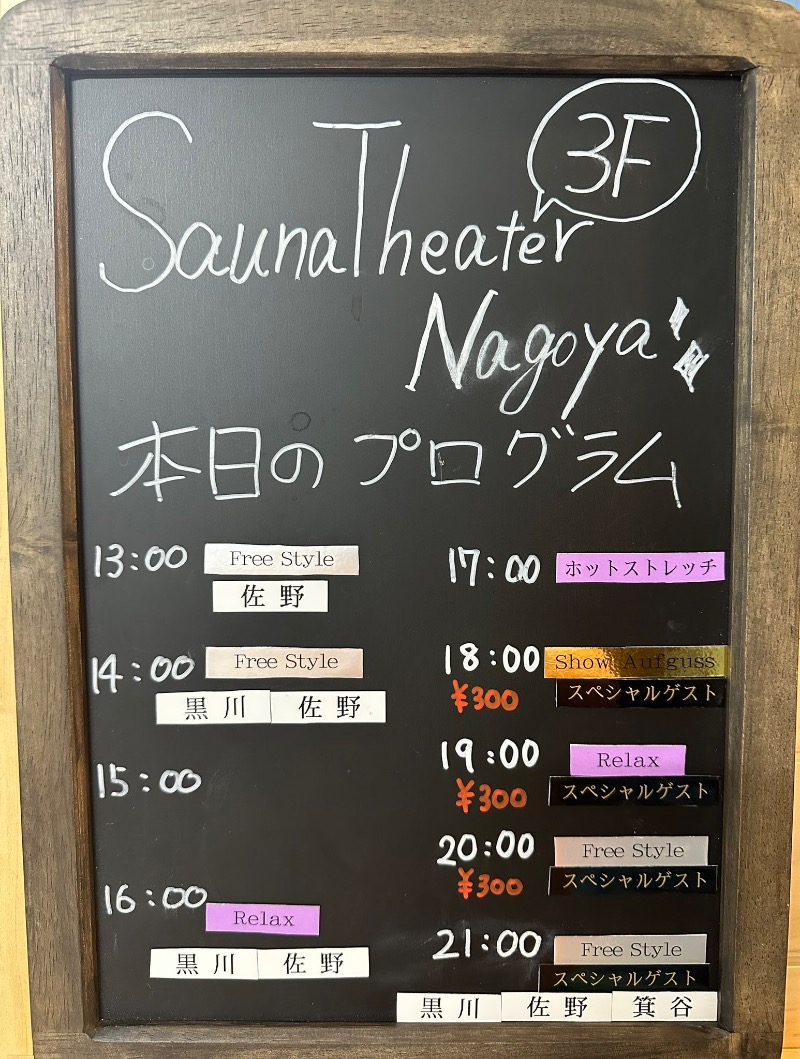 3F
SaunaTheater
Nagoya
本日のプログラム
13:00 Free Style
佐野
14:00 Free Style
黒川 佐野
15:00
16:00 Relax
黒川 佐野
17:00 ホットストレッチ
18:00 Show Aufguss
¥300 スペシャルゲスト
19:00 Relax
¥300 スペシャルゲスト
20:00 Free Style
¥300 スペシャルゲスト
21:00 Free Style
スペシャルゲスト
黒川 佐野 箕谷